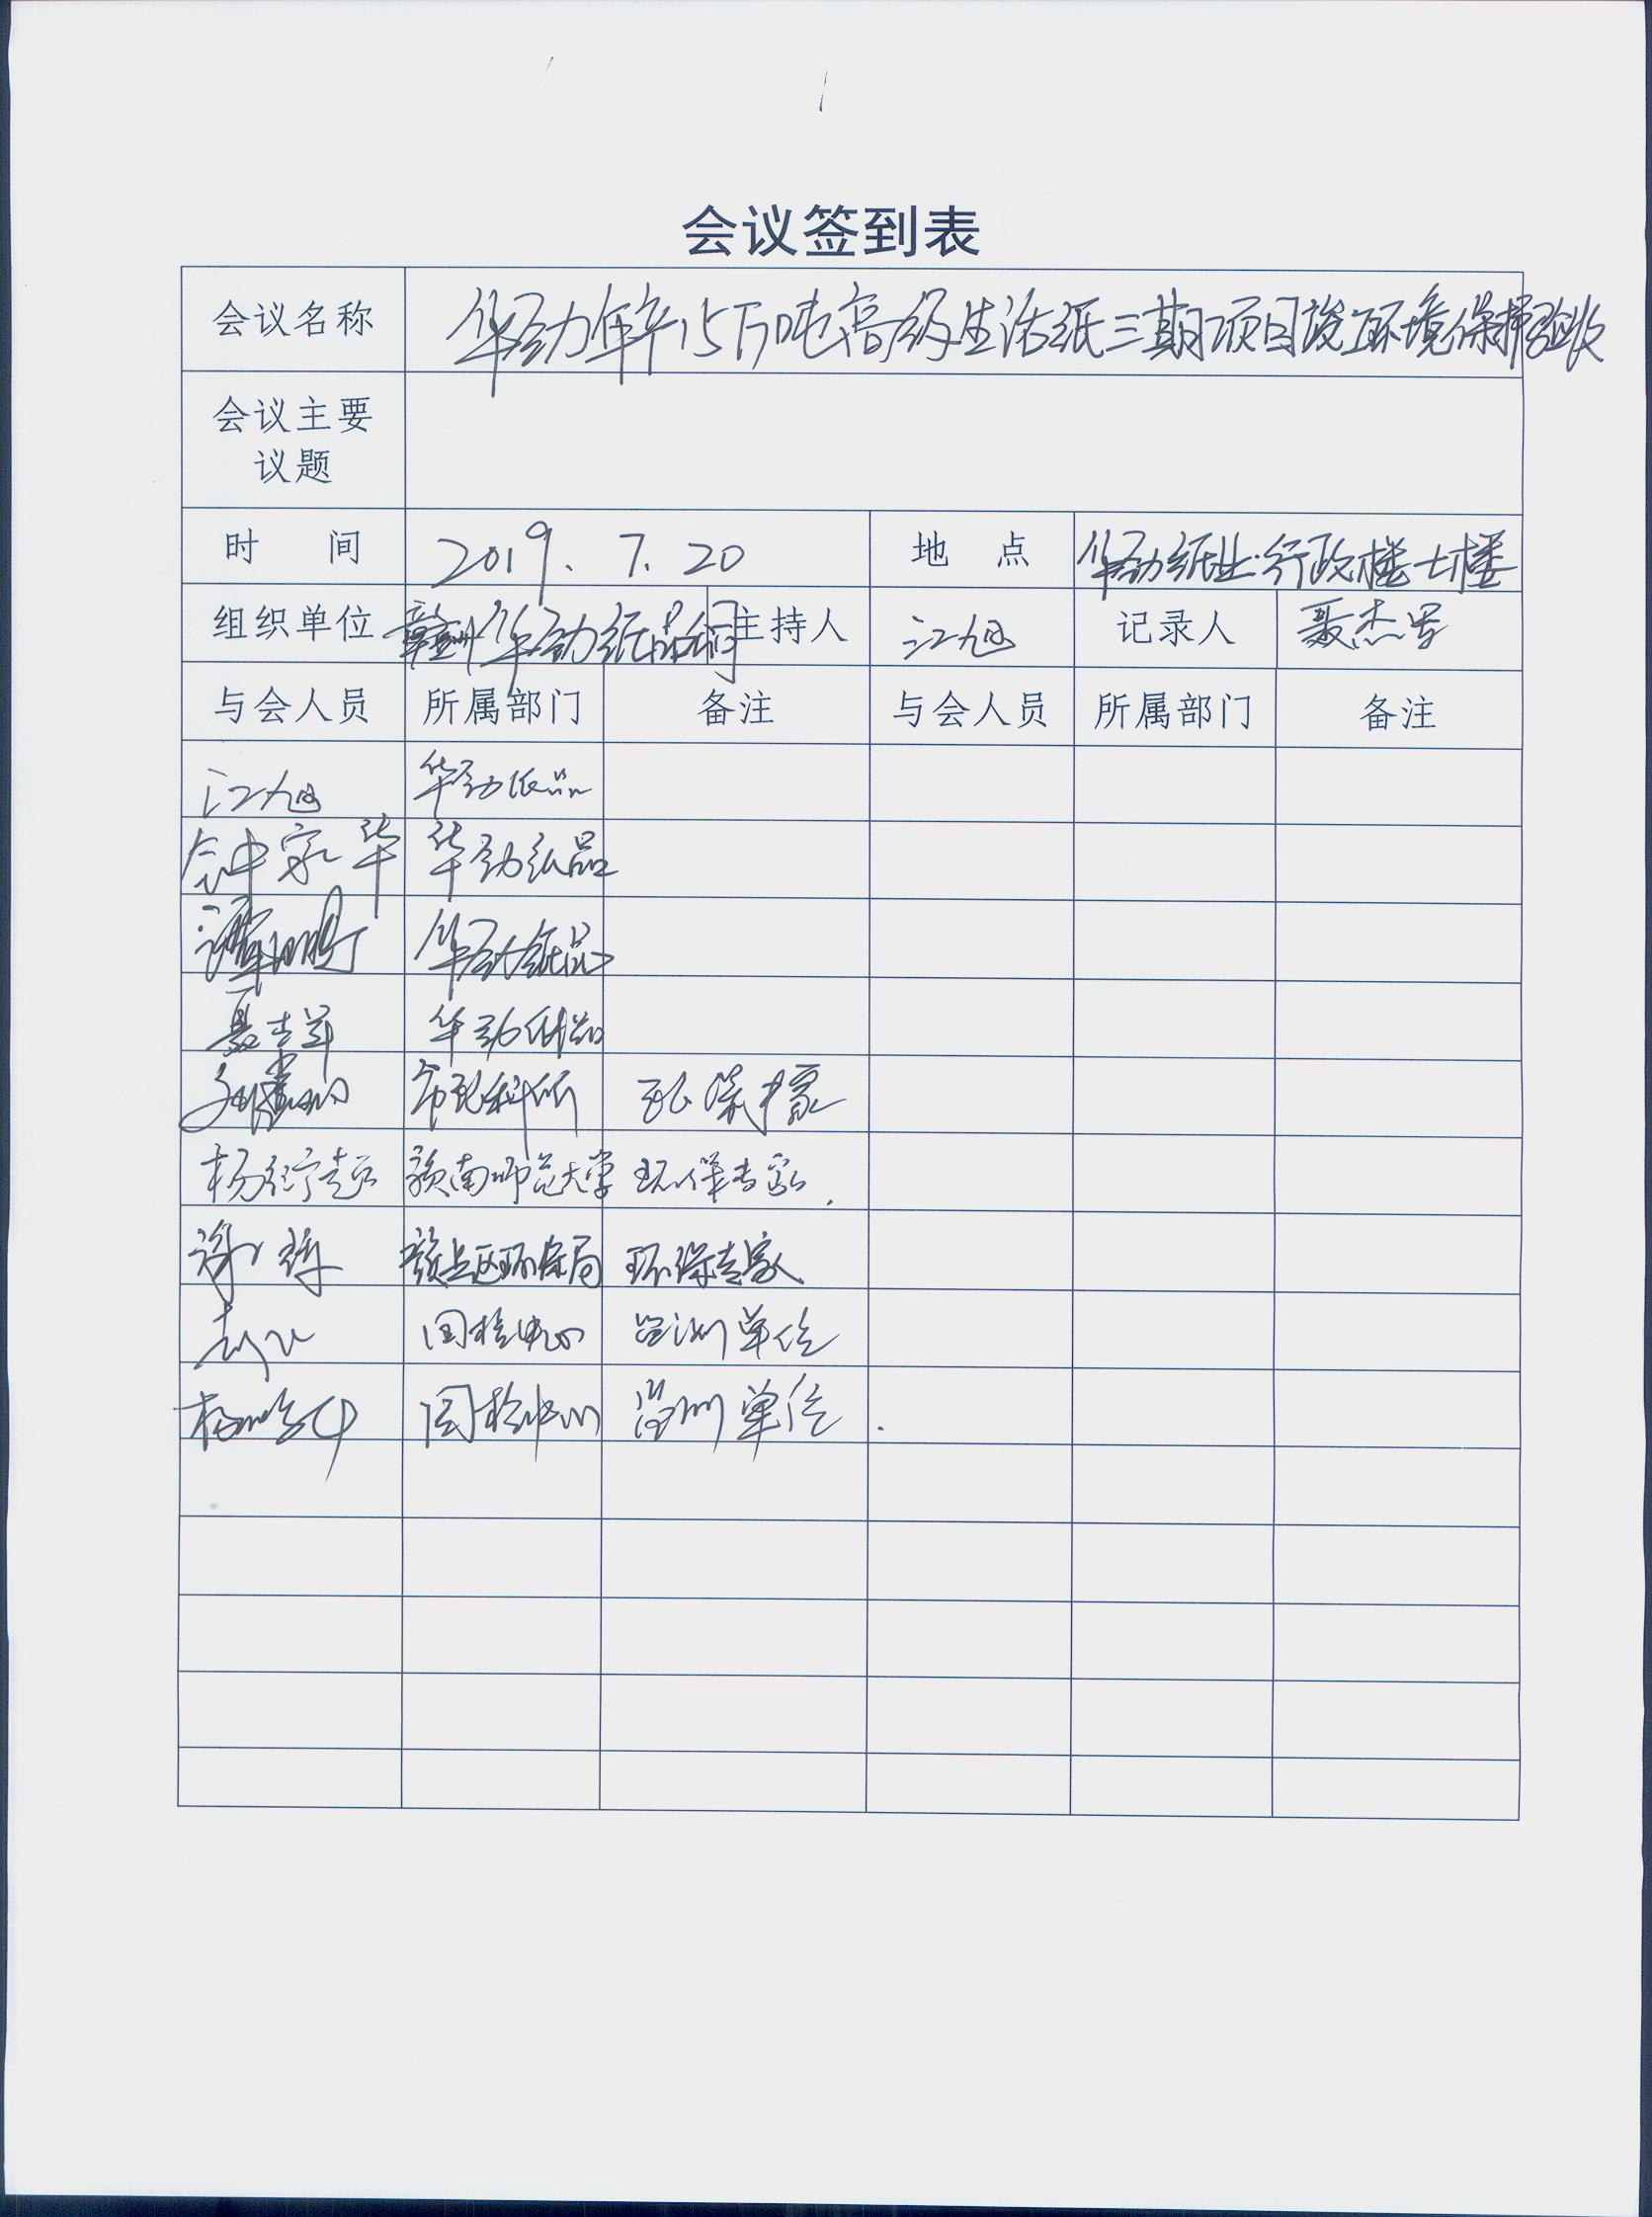 会议签到表
会议名称 华劲年产15万吨高级生活纸三期项目竣工环境保护验收
会议主要
议题
时 间 2019.7.20 地 点 华劲纸业·行政楼七楼
组织单位 赣州华劲纸品公司 主持人 江旭 记录人 聂杰
与会人员 所属部门 备注 与会人员 所属部门 备注
江旭 华劲纸品
钟家华 华劲纸品
谭 华劲纸品
聂 华劲纸品
市环科所 环保专家
杨 赣南师范大学 环保专家
谢 环保局 环保专家
国检中心 监测单位
杨 国检中心 监测单位